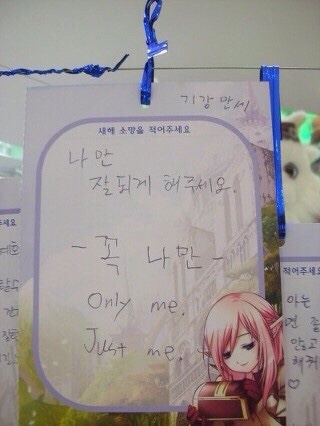 기강 만세
새해 소망을 적어주세요
나만
잘되게 해주세요.
- 꼭 나만 -
Only me.
Just me.
적어주세요